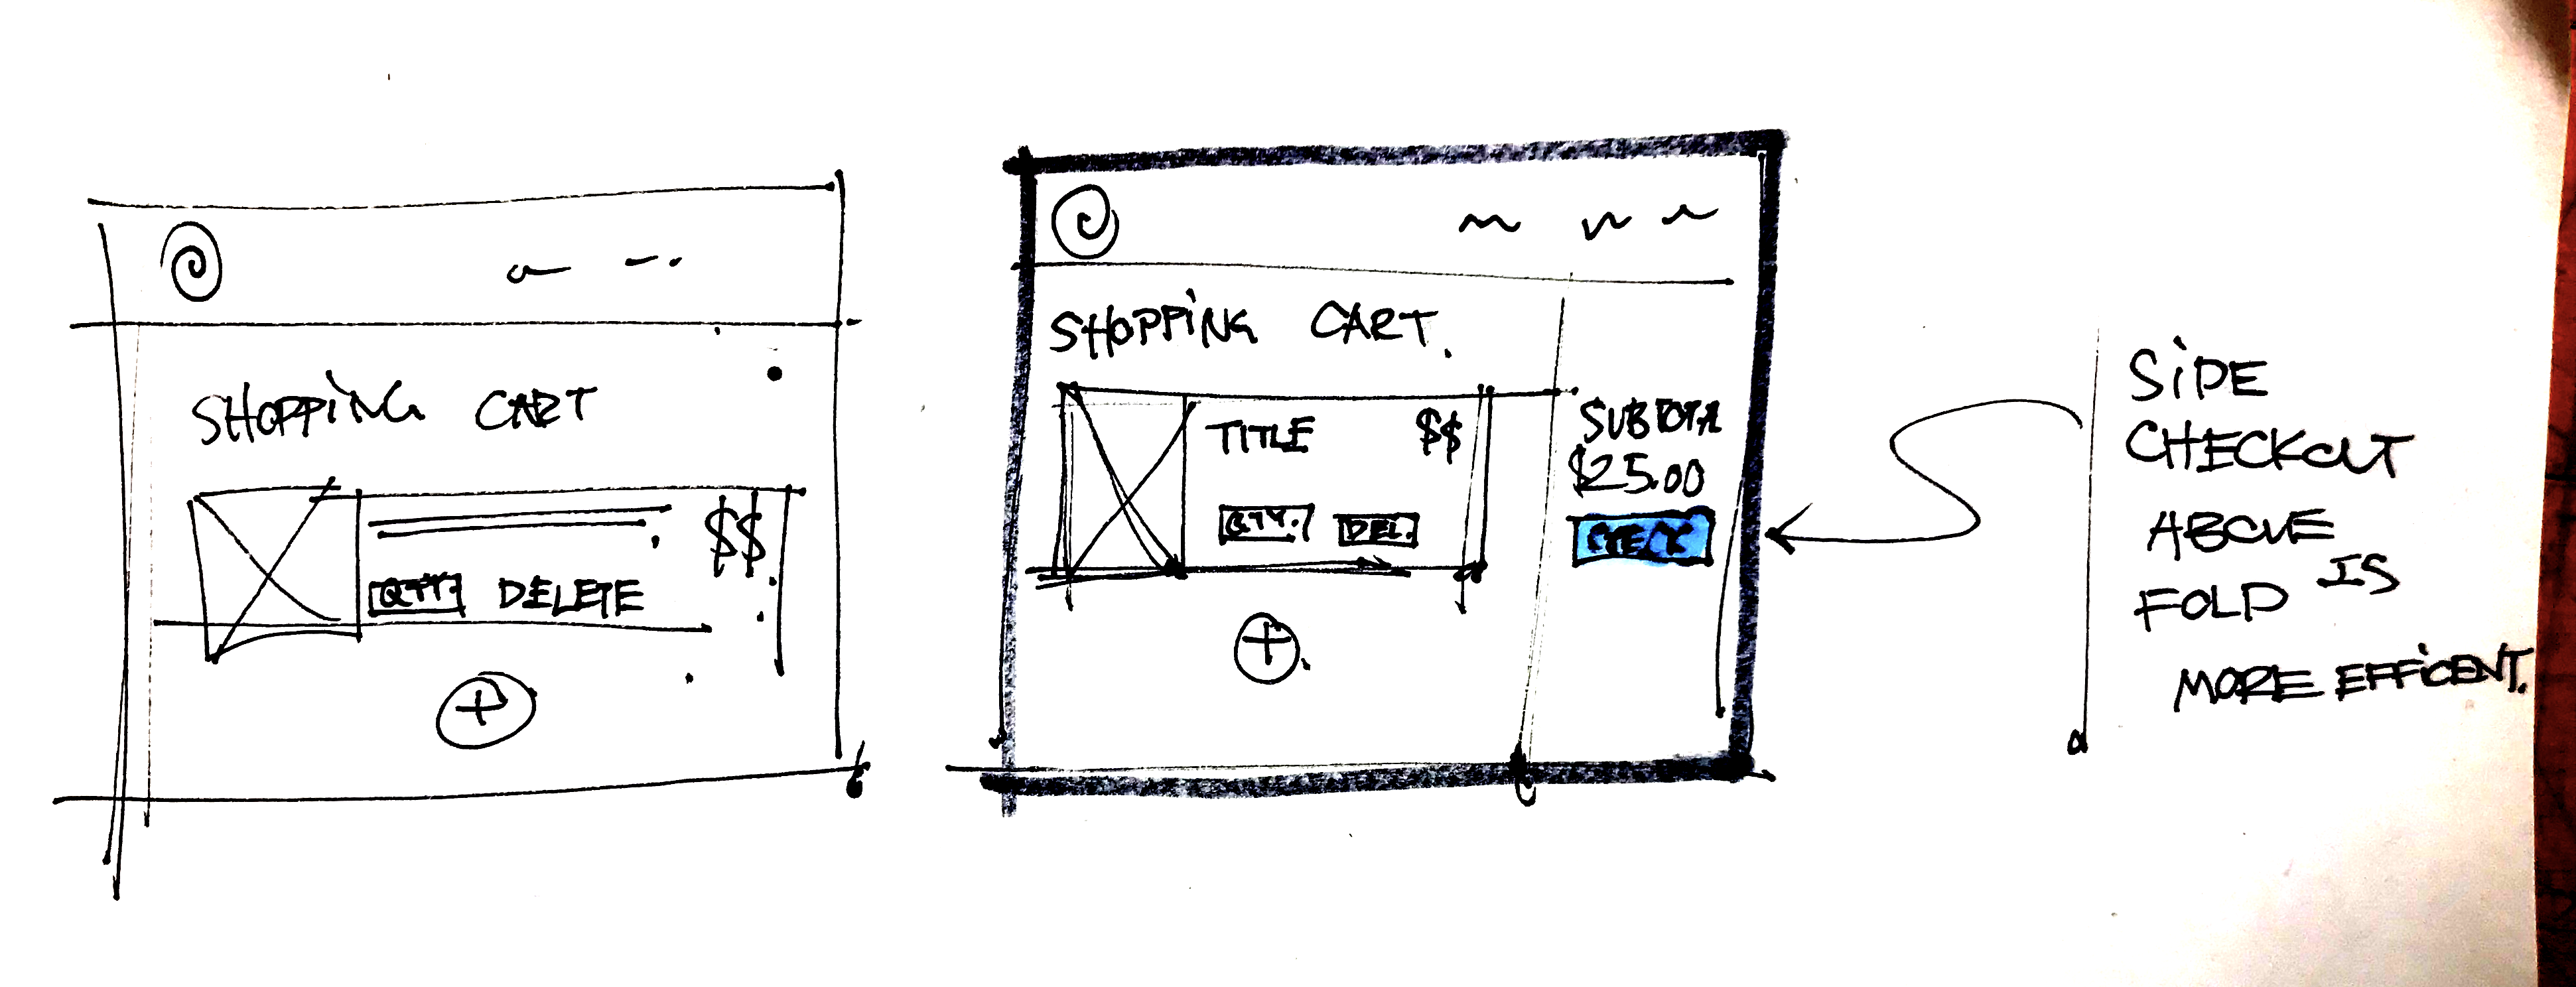 SHOPPING CART
$$
QTY. DELETE
SHOPPING CART.
TITLE $$
QTY. DEL.
SUBTOTA
$25.00
CHECK
SIDE
CHECKOUT
ABOVE
FOLD IS
MORE EFFICENT.